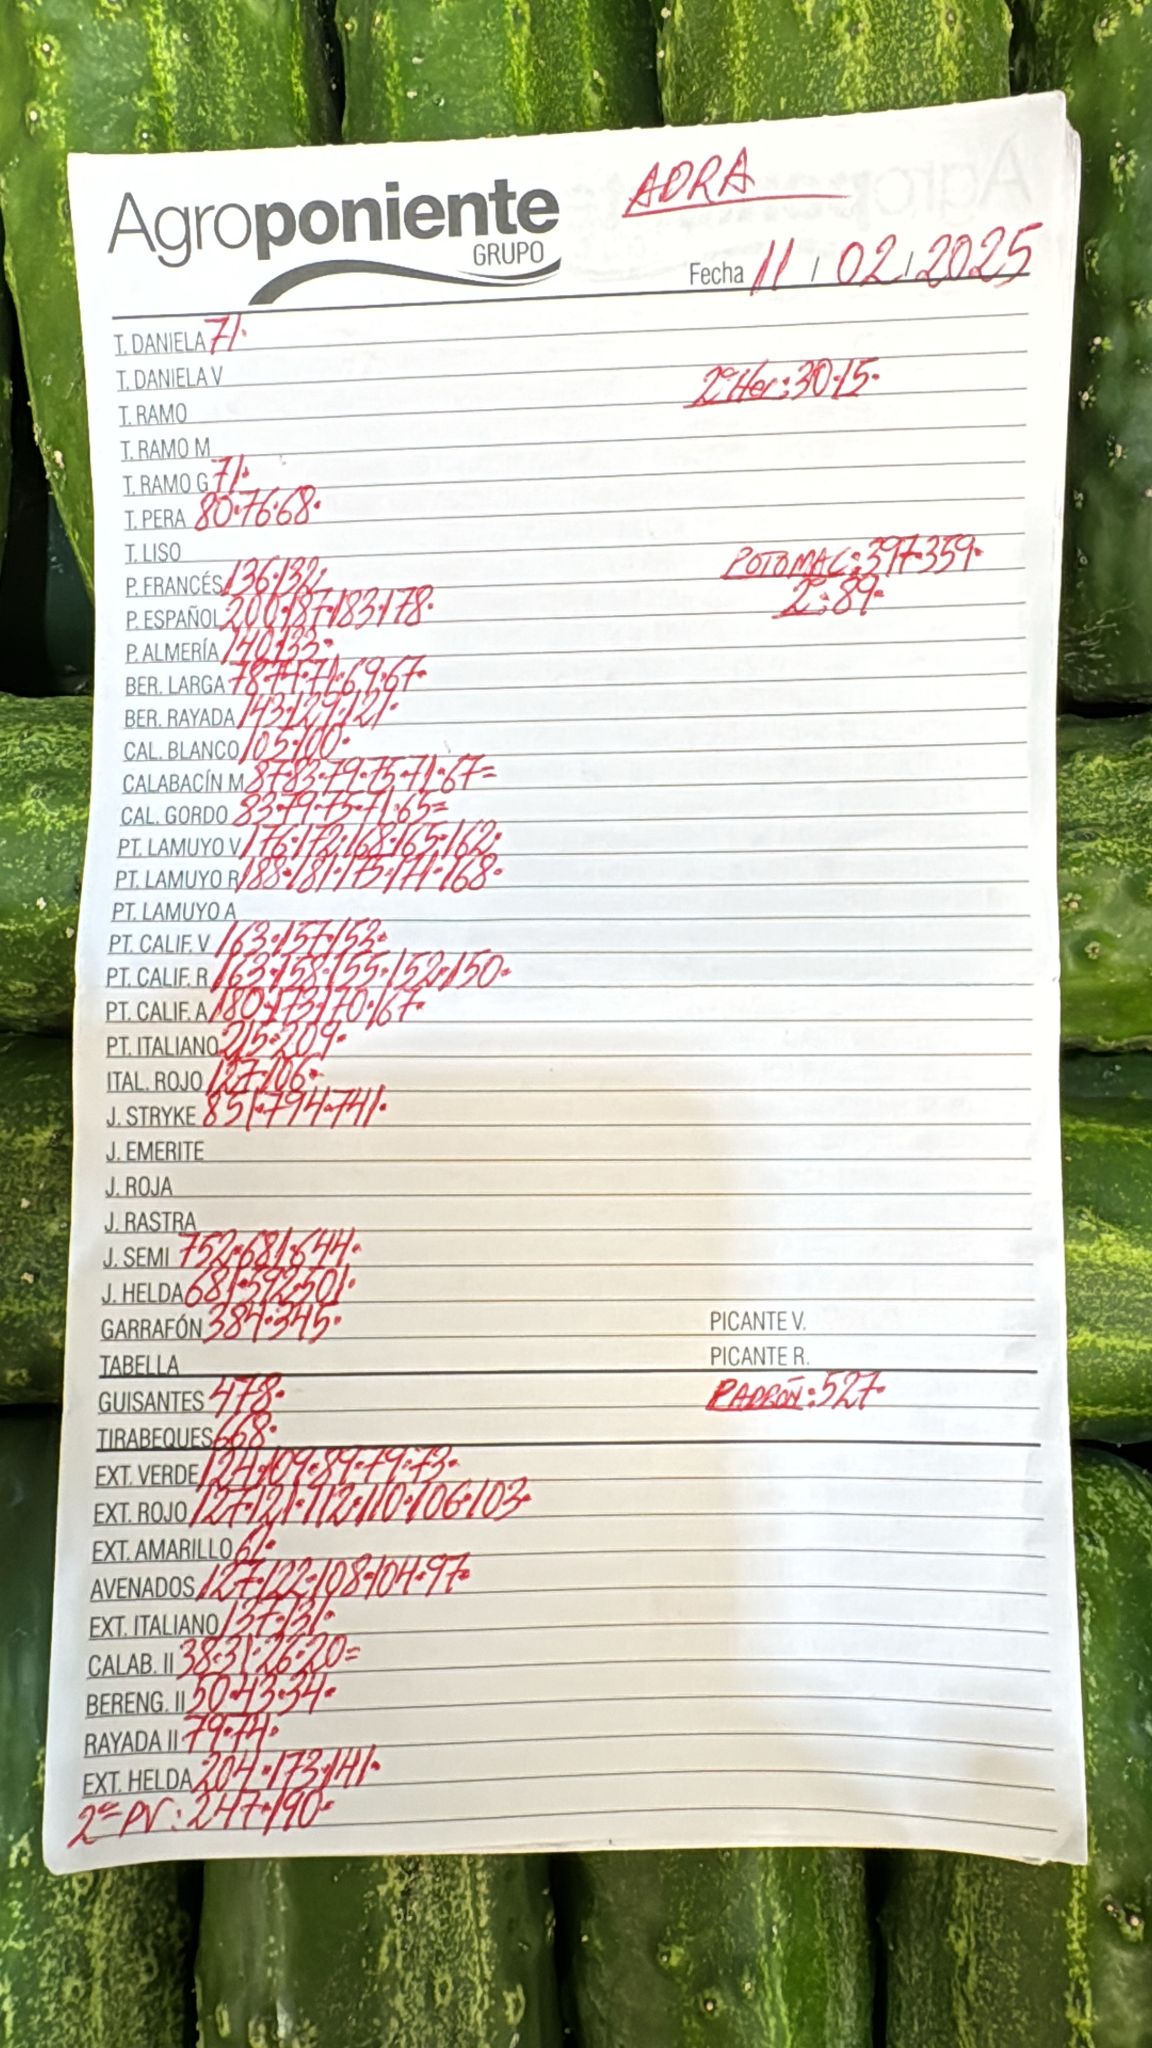 Agroponiente
GRUPO
ADRA
Fecha 11 / 02 / 2025
T. DANIELA 71.
T. DANIELA V
2ª Her: 30.15.
T. RAMO
T. RAMO M
T. RAMO G 71.
T. PERA 80.76.68.
T. LISO
POTOMAC: 397.359.
P. FRANCÉS 136.132.
2ª: 89.
P. ESPAÑOL 200.187.183.178.
P. ALMERÍA 140.133.
BER. LARGA 78.74.71.69.67.
BER. RAYADA 143.129.121.
CAL. BLANCO 105.100.
CALABACÍN M 87.83.79.75.71.67=
CAL. GORDO 83.79.75.71.65=
PT. LAMUYO V 176.172.168.165.162.
PT. LAMUYO R 188.181.175.171.168.
PT. LAMUYO A
PT. CALIF. V 163.157.152.
PT. CALIF. R 163.158.155.152.150.
PT. CALIF. A 180.173.170.167.
PT. ITALIANO 215.209.
ITAL. ROJO 127.106.
J. STRYKE 851.794.741.
J. EMERITE
J. ROJA
J. RASTRA
J. SEMI 752.681.644.
J. HELDA 681.592.501.
GARRAFÓN 384.345.
PICANTE V.
TABELLA
PICANTE R.
GUISANTES 478.
PADRÓN: 527.
TIRABEQUES 668.
EXT. VERDE 124.109.89.79.73.
EXT. ROJO 127.121.112.110.106.103.
EXT. AMARILLO 61.
AVENADOS 127.122.108.104.97.
EXT. ITALIANO 137.131.
CALAB. II 38.31.26.20=
BERENG. II 50.43.34.
RAYADA II 79.74.
EXT. HELDA 204.173.141.
2ª PV: 247.190.